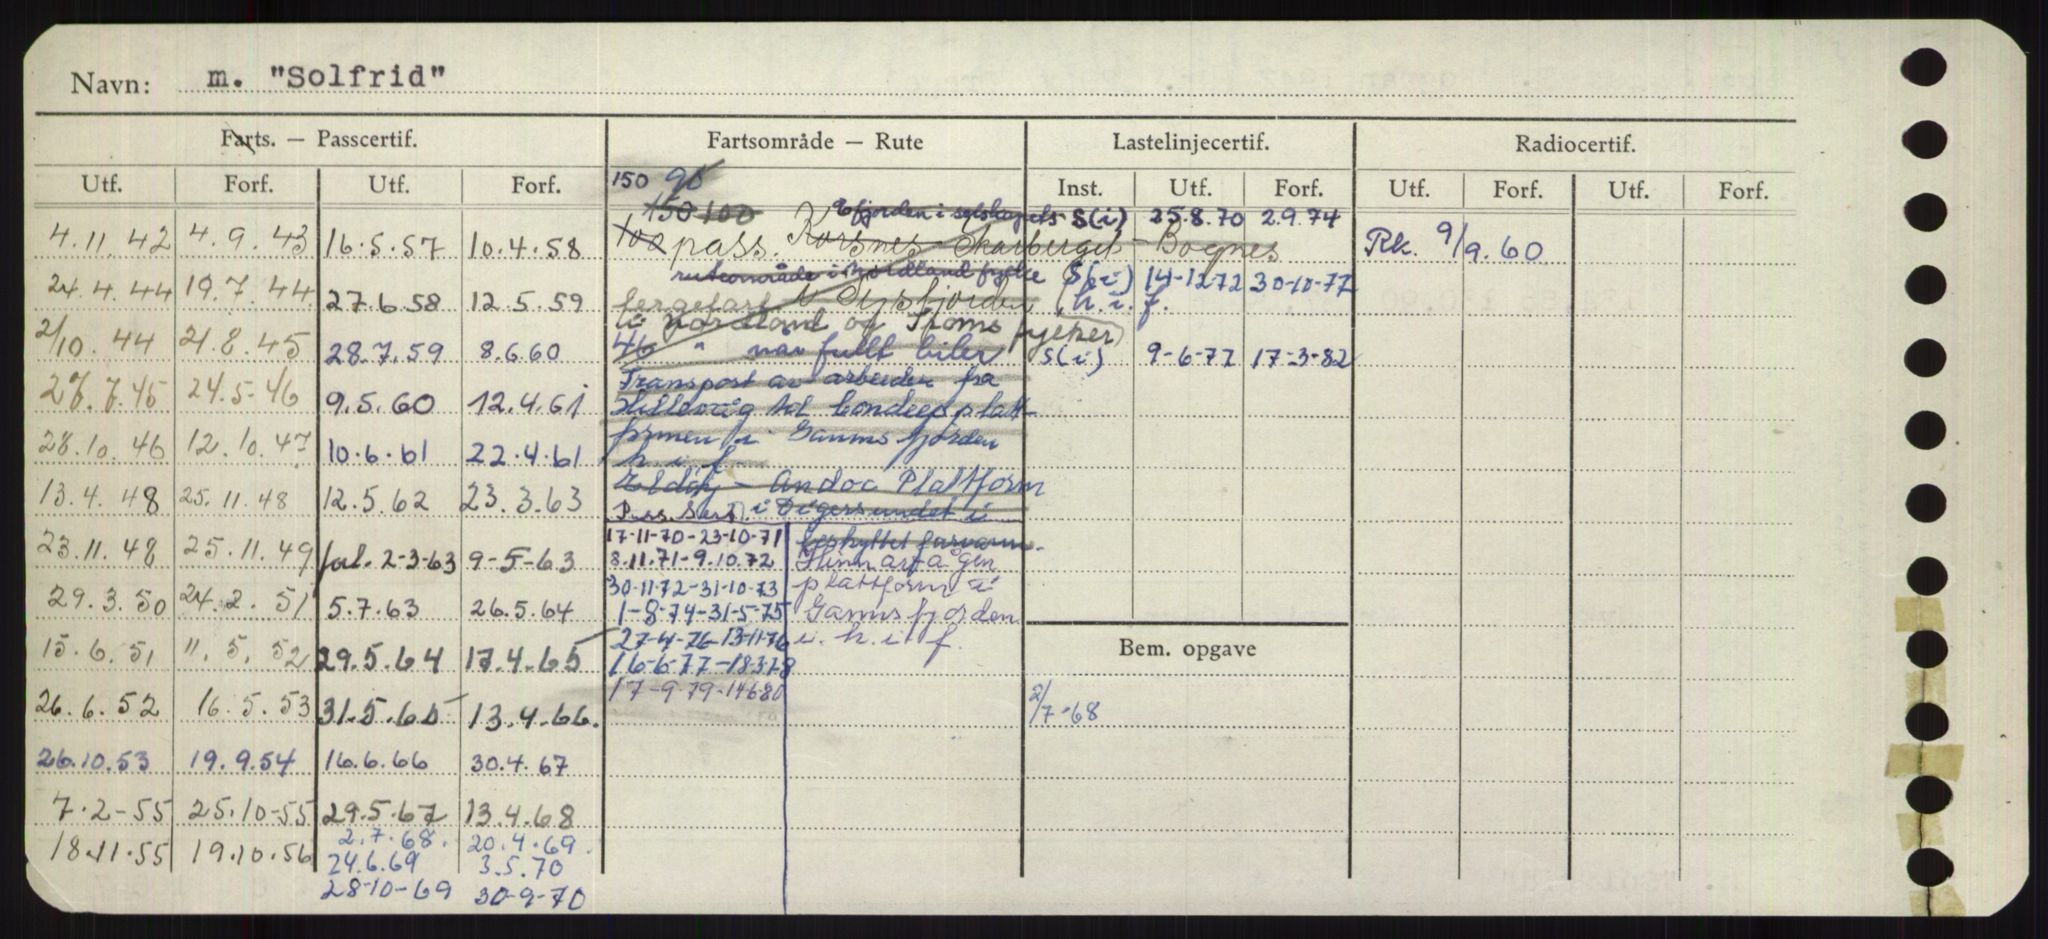 Navn: m. "Solfrid"
Farts. — Passcertif. Fartsområde — Rute Lastelinjecertif. Radiocertif.
Utf. Forf. Utf. Forf. Inst. Utf. Forf. Utf. Forf. Utf. Forf.
4.11.42 4.9.43 16.5.57 10.4.58
24.4.44 19.7.44 27.6.58 12.5.59
2/10.44 21.8.45 28.7.59 8.6.60
27.7.45 24.5-46 9.5.60 12.4.61
28.10.46 12.10.47 10.6.61 22.4.61
13.4.48 25.11.48 12.5.62 23.3.63
23.11.48 25.11.49 2-3-63 9-5-63
29.3.50 24.2.51 5.7.63 26.5.64
15.6.51 11.5.52 29.5.64 17.4.65
26.6.52 16.5.53 31.5.65 13.4.66.
26.10.53 19.9.54 16.6.66 30.4.67
7.2-55 25.10-55 29.5.67 13.4.68
18.11.55 19.10.56 2.7.68. 20.4.69.
24.6.69 3.5.70
28-10-69 30-9-70
150 90
150 100 fjorden i selskapets
100 pass. Korsnes - Skarberget - Bognes
ruteområde i Nordland fylke
fergefart Tysfjorden (h.i.f.
i Nordland og Troms fylker)
46 " når fullt biler
Transport av arbeider fra
Hillevåg til Condeepplatt-
formen i Gannsfjorden
h.i.f.
Eldøy - Andoc Plattform
Pass. Sert. i Digersundet i
beskyttet farvann.
17-11-70-23-10-71
8.11.71-9.10.72
30-11-72-31-10-73
1-8-74-31-5-75
27-4-76-13-11-76
16-6-77-18378
17-9-79-14680
Hinnavågen
plattform i
Gannsfjorden
i h.i.f.
S(i) 25.8.70 2.9.74
S(i) 14-12-72 30-10-77
S(i) 9-6-77 17-3-82
Rk. 9/9.60
Bem. opgave
2/7-68